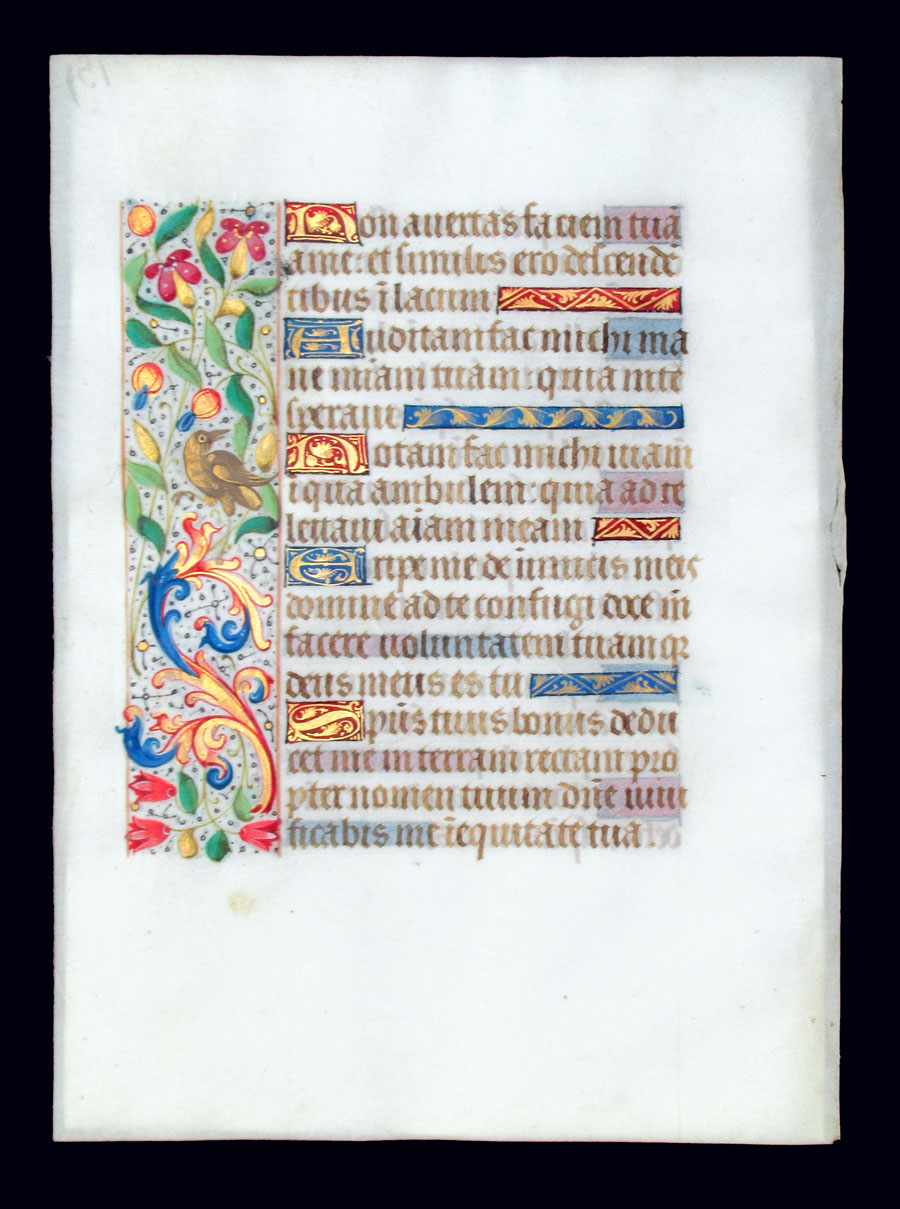 Non avertas faciem tuā
a me: et similis ero descendē
tibus ī lacum
Auditam fac michi ma
ne miām tuam: quia in te
speravi
Notam fac michi viam
ī qua ambulem: quia ad te
levavi aīam meam
Eripe me de inimicis meis
domine ad te confugi doce m̄
facere voluntatem tuam qr
deus meus es tu
Spūs tuus bonus dedu
cet me in terram rectam pro
pter nomen tuum dn̄e vivi
ficabis me ī equitate tua